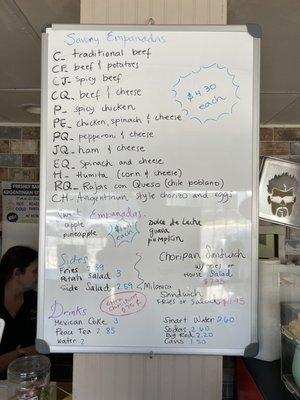 Savory Empanadas
C_ traditional beef
CP_ beef & potatoes
CJ_ spicy beef
CQ_ beef & cheese
P_ spicy chicken
PE_ chicken, spinach & cheese
PQ_ pepperoni & cheese
JQ_ ham & cheese
EQ_ Spinach and cheese
H_ Humita (corn & cheese)
RQ_ Rajas con Queso (chile poblano)
CH_ Argentinian style chorizo and eggs
$4.30
each
Sweet Empanadas
apple
pineapple
each
Dulce de Leche
guava
pumpkin
Sides
Fries
Potato Salad 3
Side Salad 2.69
Choripan Sandwich
House Salad
Milanesa
Sandwich
Fries or Salad $11.95
Drinks
Mexican Coke 3
Peace Tea 2.85
Water 2
Smart Water 2.60
Sodas 2.60
Big Red 2.20
Cans 1.50
FRESHLY BAKED